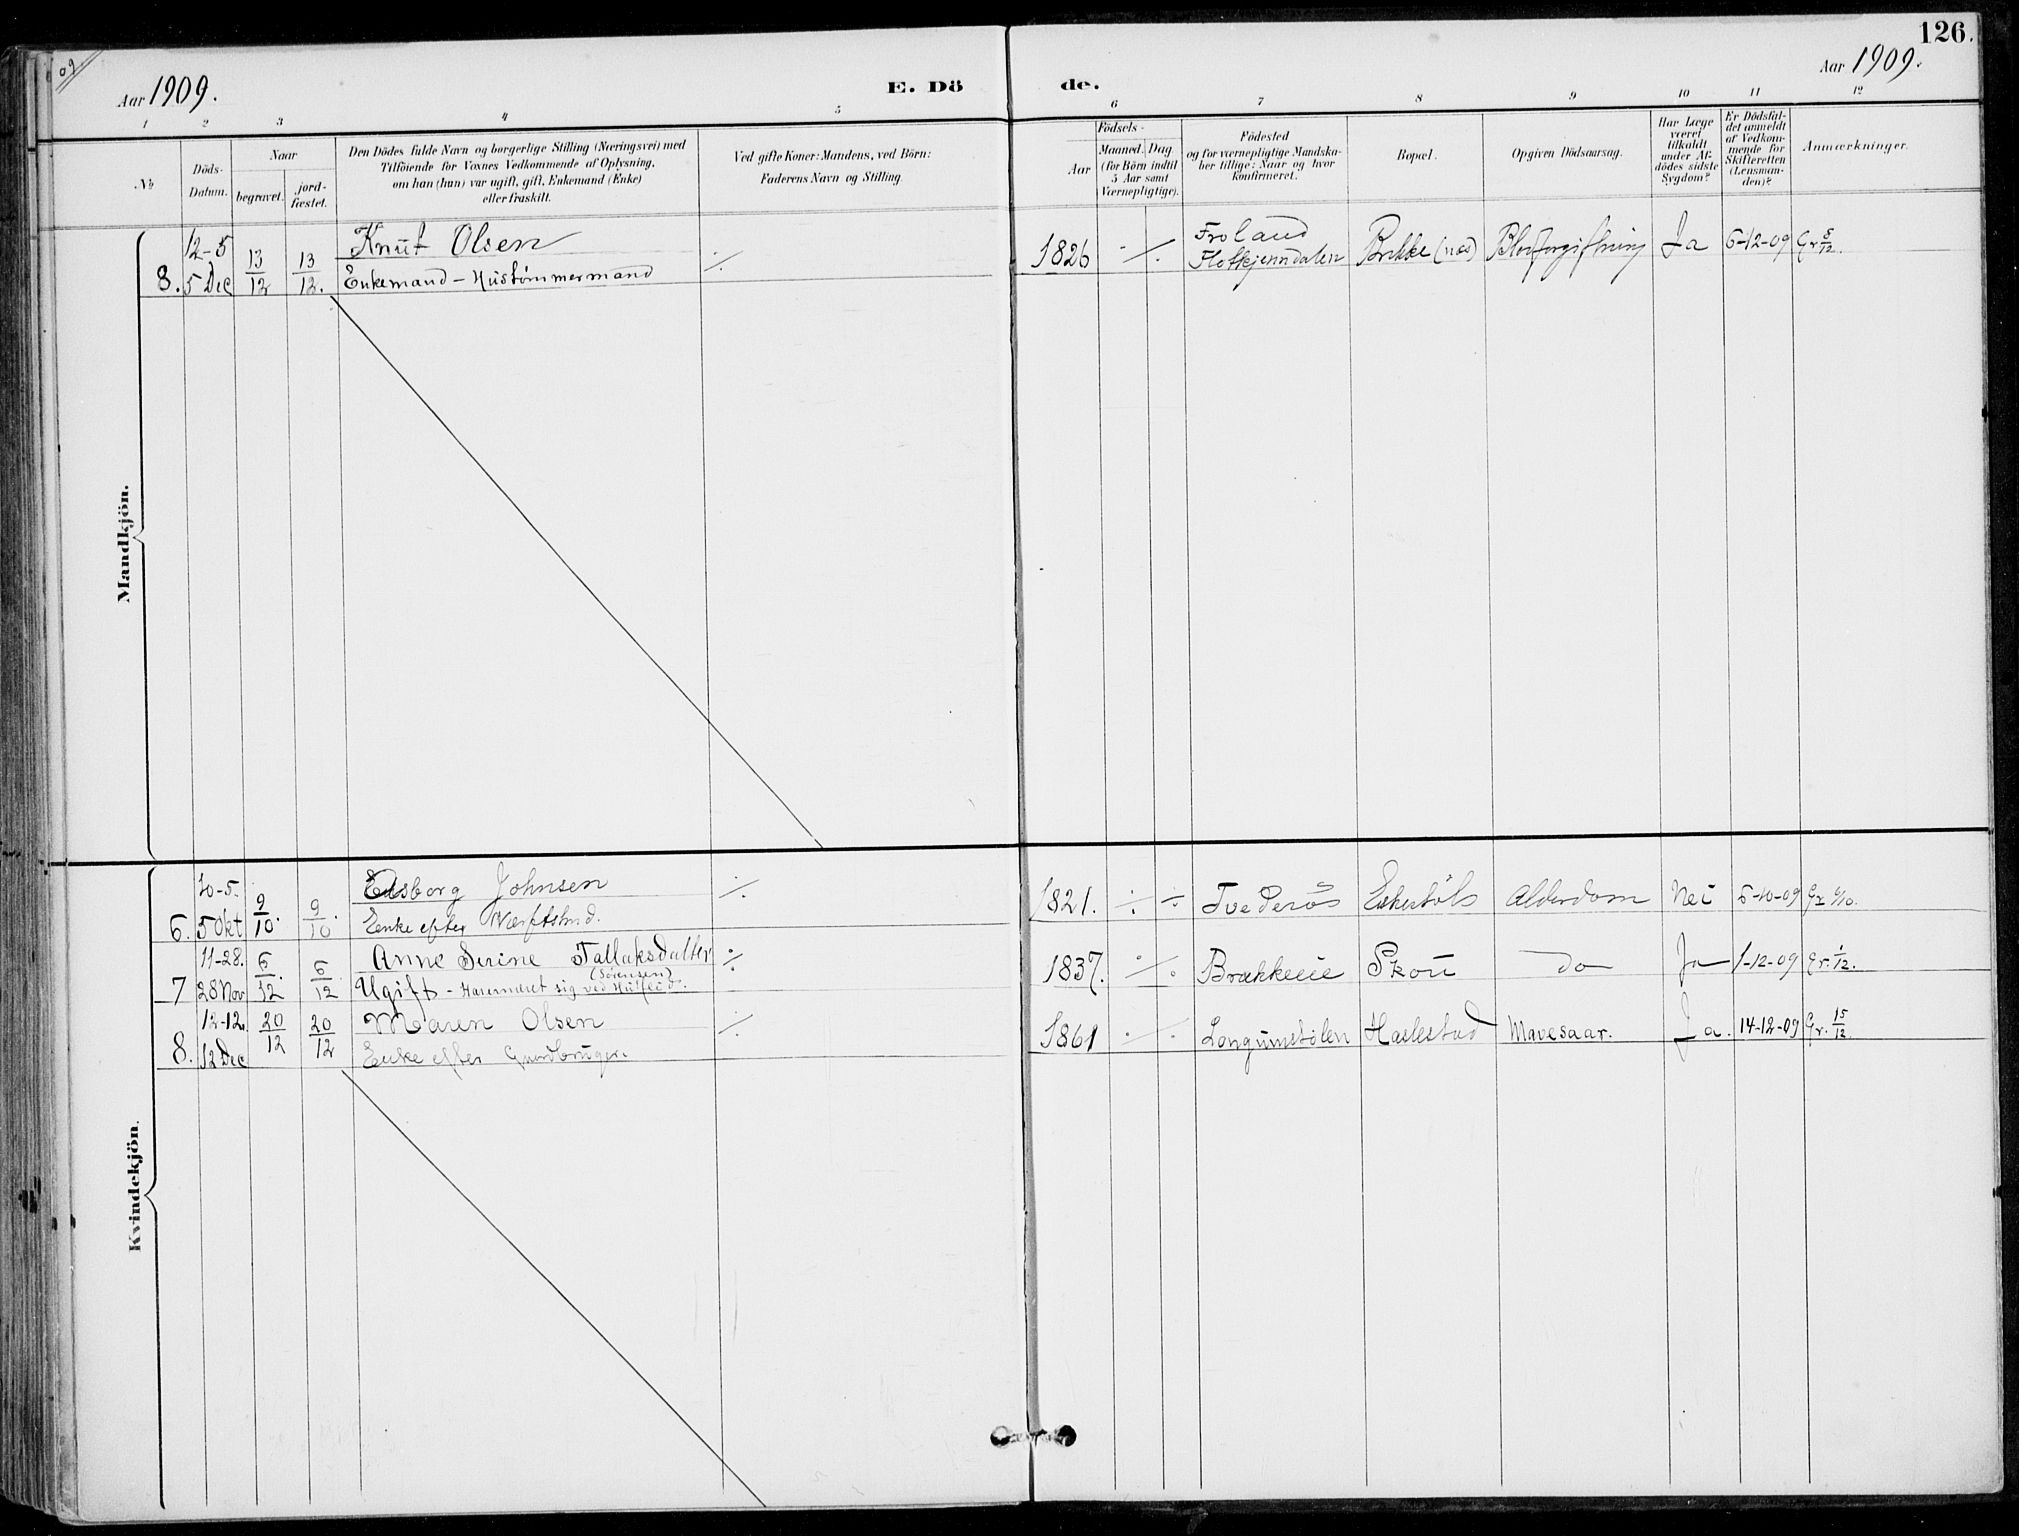 126.
09
Aar 1909.
E. Dö de.
Aar 1909.
1 2 3 4 5 6 7 8 9 10 11 12
No
Döds-Datum.
Naar
begravet.
jord-fæstet.
Den Dödes fulde Navn og borgerlige Stilling (Næringsvei) med
Tilföiende for Voxnes Vedkommende af Oplysning,
om han (hun) var ugift, gift, Enkemand (Enke)
eller fraskilt.
Ved gifte Koner: Mandens, ved Börn:
Faderens Navn og Stilling.
Födsels-
Aar
Maaned. Dag
(for Börn indtil
5 Aar samt
Værnepligtige).
Födested
og for værnepligtige Mandska-
ber tillige: Naar og hvor
Konfirmeret.
Bopæl.
Opgiven Dödsaarsag.
Har Læge
været
tilkaldt
under Af-
dødes sidste
Sygdom?
Er Dödsfal-
det anmeldt
af Vedkom-
mende for
Skifteretten
(Lensman-
den)?
Anmærkninger.
Mandkjön.
12-5 Knut Olsen Froland
8. 5 Dec 13/12 13/12. Enkemand - Hustømmermand ./. 1826 ./. Brekke (næs) Blodforgiftning Ja 6-12-09 Gr 8/12.
Kvindekjön.
10-5. Johnsen ./.
6. 5 Okt 9/10. 9/10. Enke efter 1821. ÷ ÷ Tvederøs Alderdom Nei 5-10-09 Gr
11-28. Anne Serine Tallaksdatter ./.
(Sörensen)
7 28 Nov 6/12. 6/12. Ugift - Haver næret sig ved 1837. ./. Brækkeeie Skou do Ja 1-12-09 Gr. 1/12.
12-12. Maren Olsen ./.
8. 12 Dec 20/12 20/12 Enke efter Gaardbruger. 1861 ./. Longumstølen Haslestad Mavesaar. Ja. 14-12-09 Gr. 15/12.